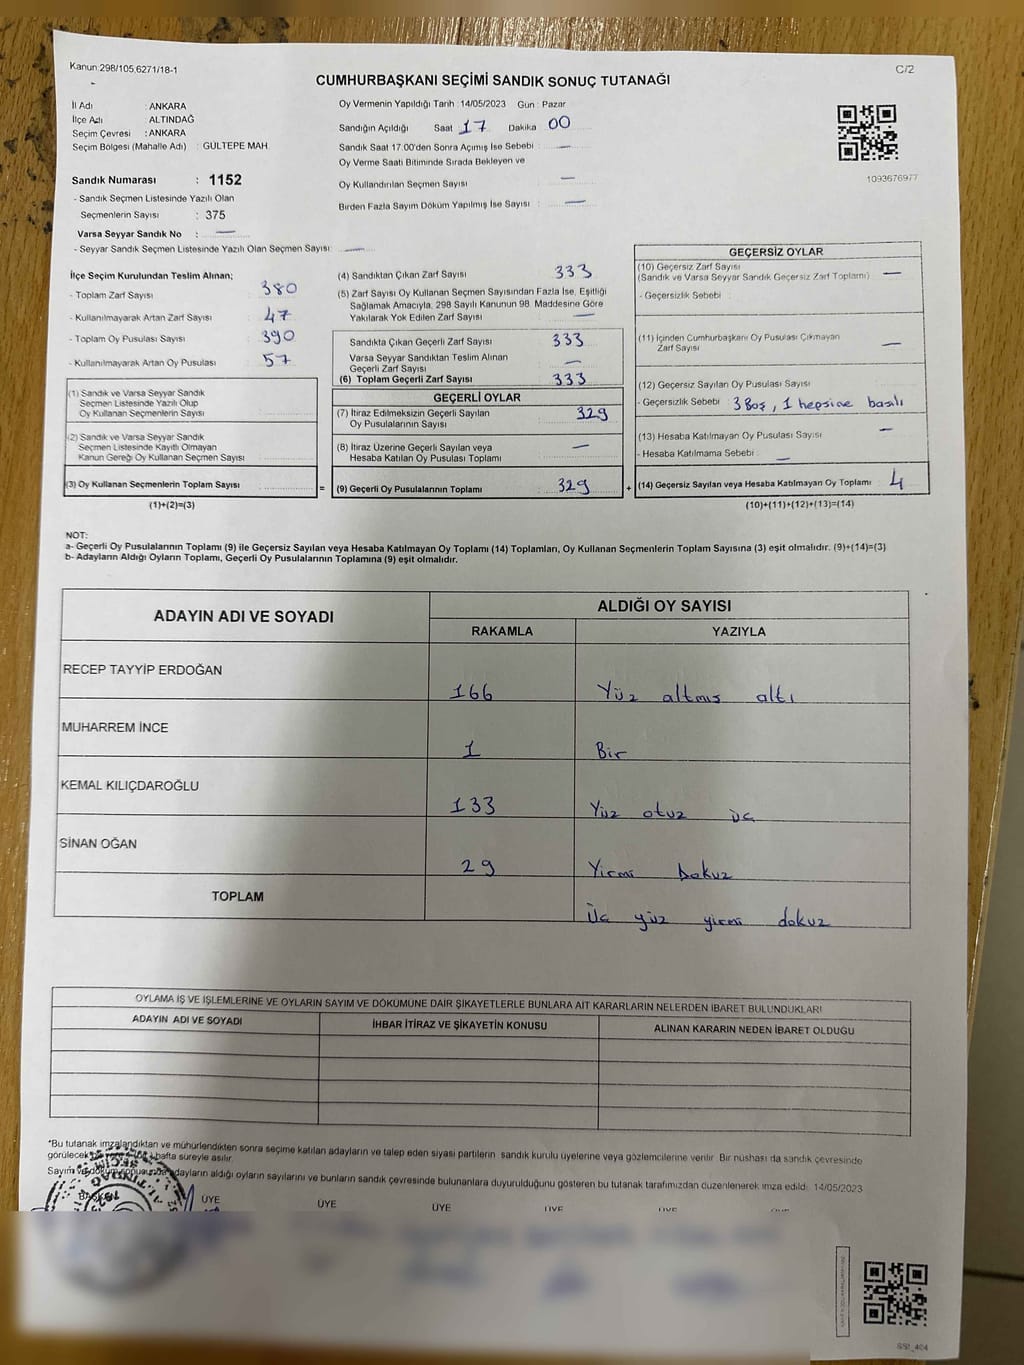 Kanun:298/105,6271/18-1
C/2
CUMHURBAŞKANI SEÇİMİ SANDIK SONUÇ TUTANAĞI
İl Adı : ANKARA
İlçe Adı : ALTINDAĞ
Seçim Çevresi : ANKARA
Seçim Bölgesi (Mahalle Adı) : GÜLTEPE MAH.
Sandık Numarası : 1152
- Sandık Seçmen Listesinde Yazılı Olan
Seçmenlerin Sayısı : 375
Varsa Seyyar Sandık No : —
- Seyyar Sandık Seçmen Listesinde Yazılı Olan Seçmen Sayısı: —
Oy Vermenin Yapıldığı Tarih :14/05/2023 Gün : Pazar
Sandığın Açıldığı Saat 17 Dakika 00
Sandık Saat 17:00'den Sonra Açımış İse Sebebi : —
Oy Verme Saati Bitiminde Sırada Bekleyen ve
Oy Kullandırılan Seçmen Sayısı : —
Birden Fazla Sayım Döküm Yapılmış İse Sayısı : —
1093676977
İlçe Seçim Kurulundan Teslim Alınan;
- Toplam Zarf Sayısı : 380
- Kullanılmayarak Artan Zarf Sayısı : 47
- Toplam Oy Pusulası Sayısı : 390
- Kullanılmayarak Artan Oy Pusulası : 57
(1) Sandık ve Varsa Seyyar Sandık
Seçmen Listesinde Yazılı Olup
Oy Kullanan Seçmenlerin Sayısı :
(2) Sandık ve Varsa Seyyar Sandık
Seçmen Listesinde Kayıtlı Olmayan
Kanun Gereği Oy Kullanan Seçmen Sayısı
(3) Oy Kullanan Seçmenlerin Toplam Sayısı =
(1)+(2)=(3)
(4) Sandıktan Çıkan Zarf Sayısı : 333
(5) Zarf Sayısı Oy Kullanan Seçmen Sayısından Fazla İse, Eşitliği
Sağlamak Amacıyla, 298 Sayılı Kanunun 98. Maddesine Göre
Yakılarak Yok Edilen Zarf Sayısı : —
Sandıkta Çıkan Geçerli Zarf Sayısı : 333
Varsa Seyyar Sandıktan Teslim Alınan
Geçerli Zarf Sayısı : —
(6) Toplam Geçerli Zarf Sayısı : 333
GEÇERLİ OYLAR
(7) İtiraz Edilmeksizin Geçerli Sayılan
Oy Pusulalarının Sayısı : 329
(8) İtiraz Üzerine Geçerli Sayılan veya
Hesaba Katılan Oy Pusulası Toplamı : —
(9) Geçerli Oy Pusulalarının Toplamı : 329 +
GEÇERSİZ OYLAR
(10) Geçersiz Zarf Sayısı
(Sandık ve Varsa Seyyar Sandık Geçersiz Zarf Toplamı) : —
- Geçersizlik Sebebi :
(11) İçinden Cumhurbaşkanı Oy Pusulası Çıkmayan
Zarf Sayısı : —
(12) Geçersiz Sayılan Oy Pusulası Sayısı :
- Geçersizlik Sebebi : 3 Boş, 1 hepsine basılı
(13) Hesaba Katılmayan Oy Pusulası Sayısı : —
- Hesaba Katılmama Sebebi : —
(14) Geçersiz Sayılan veya Hesaba Katılmayan Oy Toplamı : 4
(10)+(11)+(12)+(13)=(14)
NOT:
a- Geçerli Oy Pusulalarının Toplamı (9) ile Geçersiz Sayılan veya Hesaba Katılmayan Oy Toplamı (14) Toplamları, Oy Kullanan Seçmenlerin Toplam Sayısına (3) eşit olmalıdır. (9)+(14)=(3)
b- Adayların Aldığı Oyların Toplamı, Geçerli Oy Pusulalarının Toplamına (9) eşit olmalıdır.
ADAYIN ADI VE SOYADI ALDIĞI OY SAYISI
RAKAMLA YAZIYLA
RECEP TAYYİP ERDOĞAN 166 Yüz altmış altı
MUHARREM İNCE 1 Bir
KEMAL KILIÇDAROĞLU 133 Yüz otuz üç
SİNAN OĞAN 29 Yirmi Dokuz
TOPLAM Üç yüz yirmi dokuz
OYLAMA İŞ VE İŞLEMLERİNE VE OYLARIN SAYIM VE DÖKÜMÜNE DAİR ŞİKAYETLERLE BUNLARA AİT KARARLARIN NELERDEN İBARET BULUNDUKLARI
ADAYIN ADI VE SOYADI İHBAR İTİRAZ VE ŞİKAYETİN KONUSU ALINAN KARARIN NEDEN İBARET OLDUĞU
*Bu tutanak imzalandıktan ve mühürlendikten sonra seçime katılan adayların ve talep eden siyasi partilerin sandık kurulu üyelerine veya gözlemcilerine verilir. Bir nüshası da sandık çevresinde
görülecek hafta süreyle asılır.
Sayım ve döküm sonucunda adayların aldığı oyların sayılarını ve bunların sandık çevresinde bulunanlara duyurulduğunu gösteren bu tutanak tarafımızdan düzenlenerek imza edildi. 14/05/2023
ÜYE ÜYE ÜYE ÜYE ÜYE ÜYE